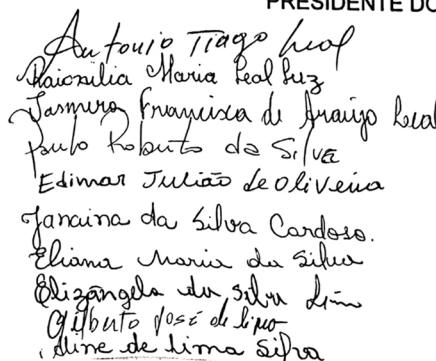 PRESIDENTE DO
Antonio Tiago Leal
Maria Leal Luz
Francisca de Araújo Leal
Paulo Roberto da Silva
Edimar Julião de Oliveira
Janaina da Silva Cardoso.
Eliana Maria da Silva
Elizângela da Silva Lima
Gilberto José de Lima
Aline de Lima Silva